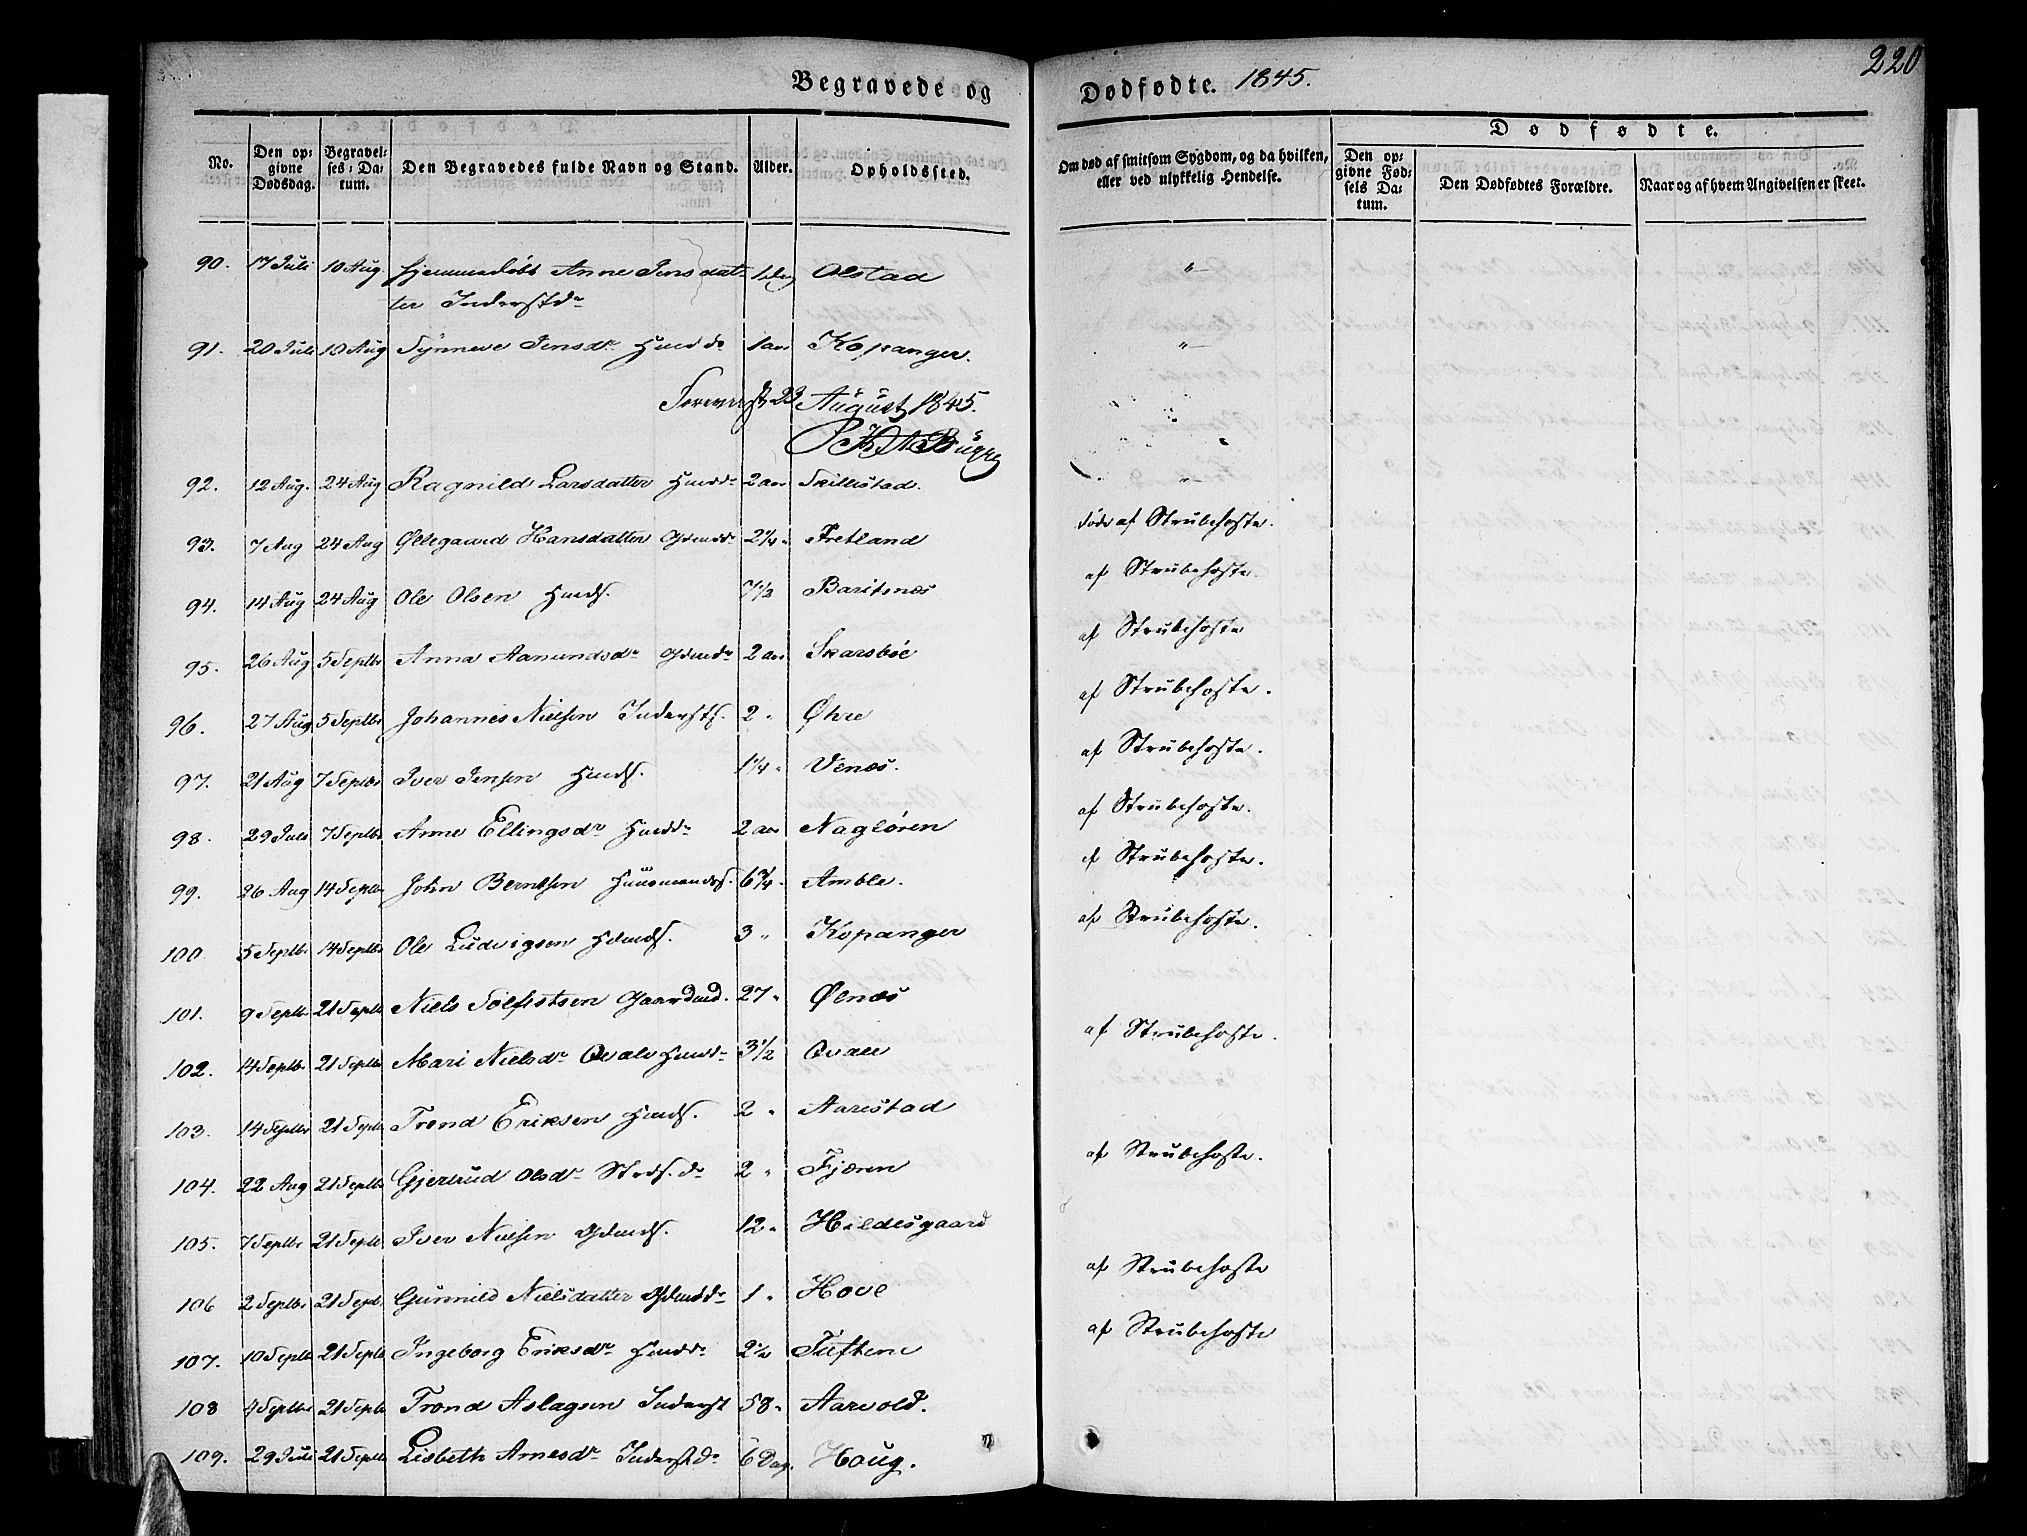 220
Begravede og Dødfødte. 1845.
Dødfødte.
No. Den opgivne Dødsdag. Begravelses-Datum. Den Begravedes fulde Navn og Stand. Alder. Opholdssted. Om død af smitsom Sygdom, og da hvilken, eller ved ulykkelig Hendelse. Den opgivne Fødsels Datum. Den Dødfødtes Forældre. Naar og af hvem Angivelsen er skeet.
90. 17 Juli 10 Aug. Hjemmedøbt Anne Jensdat- 1 Dag Olstad "
ter Inderstdr
91. 20 Juli 10 Aug Synneve Jensdr Husdr 1 aar Kopanger. "
23 August 1845.
92. 12 Aug. 24 Aug Ragnild Larsdatter 2 aar Skillestad. "
93. 7 Aug 24 Aug Øllegaard Hansdatter 2¼ " Fretland døde af Strubehoste.
94. 14 Aug 24 Aug Ole Olsen 7½ Baritnæs af Strubehoste.
95. 26 Aug 5 Septbr Anna Aamundsdr 2 aar Skarsbøe af Strubehoste
96. 27 Aug 5 Septbr Johannes Nielsen Inderst S. 2 " Øhre af Strubehoste.
97. 21 Aug 7 Septbr Iver Jensen 1¼ " Venæs. af Strubehoste.
98. 29 Juli 7 Septbr Anne Ellingsdr 2 aar Nagløren af Strubehoste.
99. 26 Aug 14 Septbr John Berntsen Huusmands S. 6¾ " Amble. af Strubehoste.
100 5 Septbr 14 Septbr Ole Ludvigsen 3 " Kopanger af Strubehoste.
101. 9 Septbr 21 Septbr Niels Solfestsen Gaardmd. 27 " Ølnæs
102. 14 Septbr 21 Septbr Mari Nielsdr Qvale 3½ Qvale af Strubehoste.
103. 14 Septbr 21 Septbr Trond Eriksen 2 " Aarestad
104. 22 Aug 21 Septbr Gjertrud Olsdr 2 " Fjæren af Strubehoste.
105. 7 Septbr 21 Septbr Iver Nielsen 12 " Hildesgaard
106 2 Septbr 21 Septbr Gunnild Nielsdatter 1 " Hove af Strubehoste
107. 10 Septbr 21 Septbr Ingeborg Eriksdr 2½ Tuftene af Strubehoste
108 4 Septbr 21 Septbr Trond Aslagsen Inderst 58 " Aarvold.
109. 29 Juli 21 Septbr Lisbeth Arnesdr Inderstdr 6 Dag. Houg.